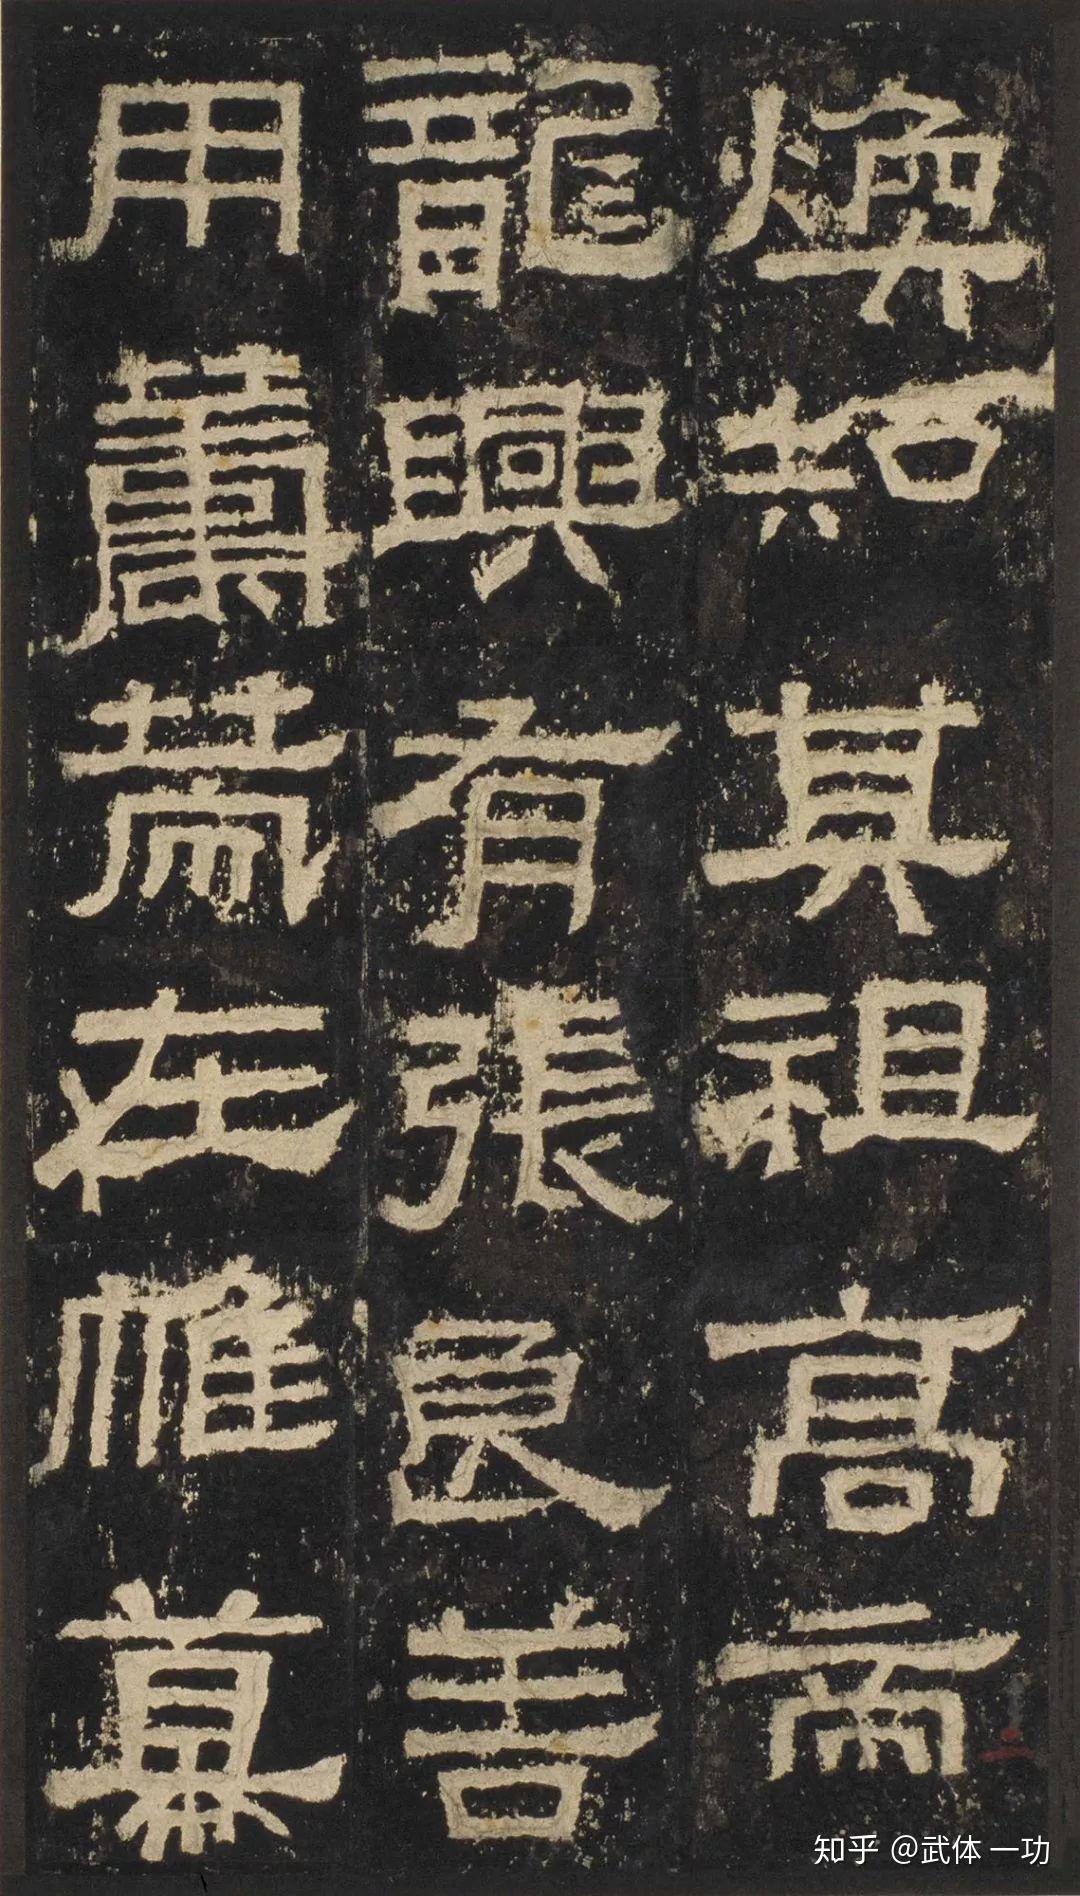 煥知其祖高帝
龍興有張良善
用籌策在帷幕
知乎 @武体一功